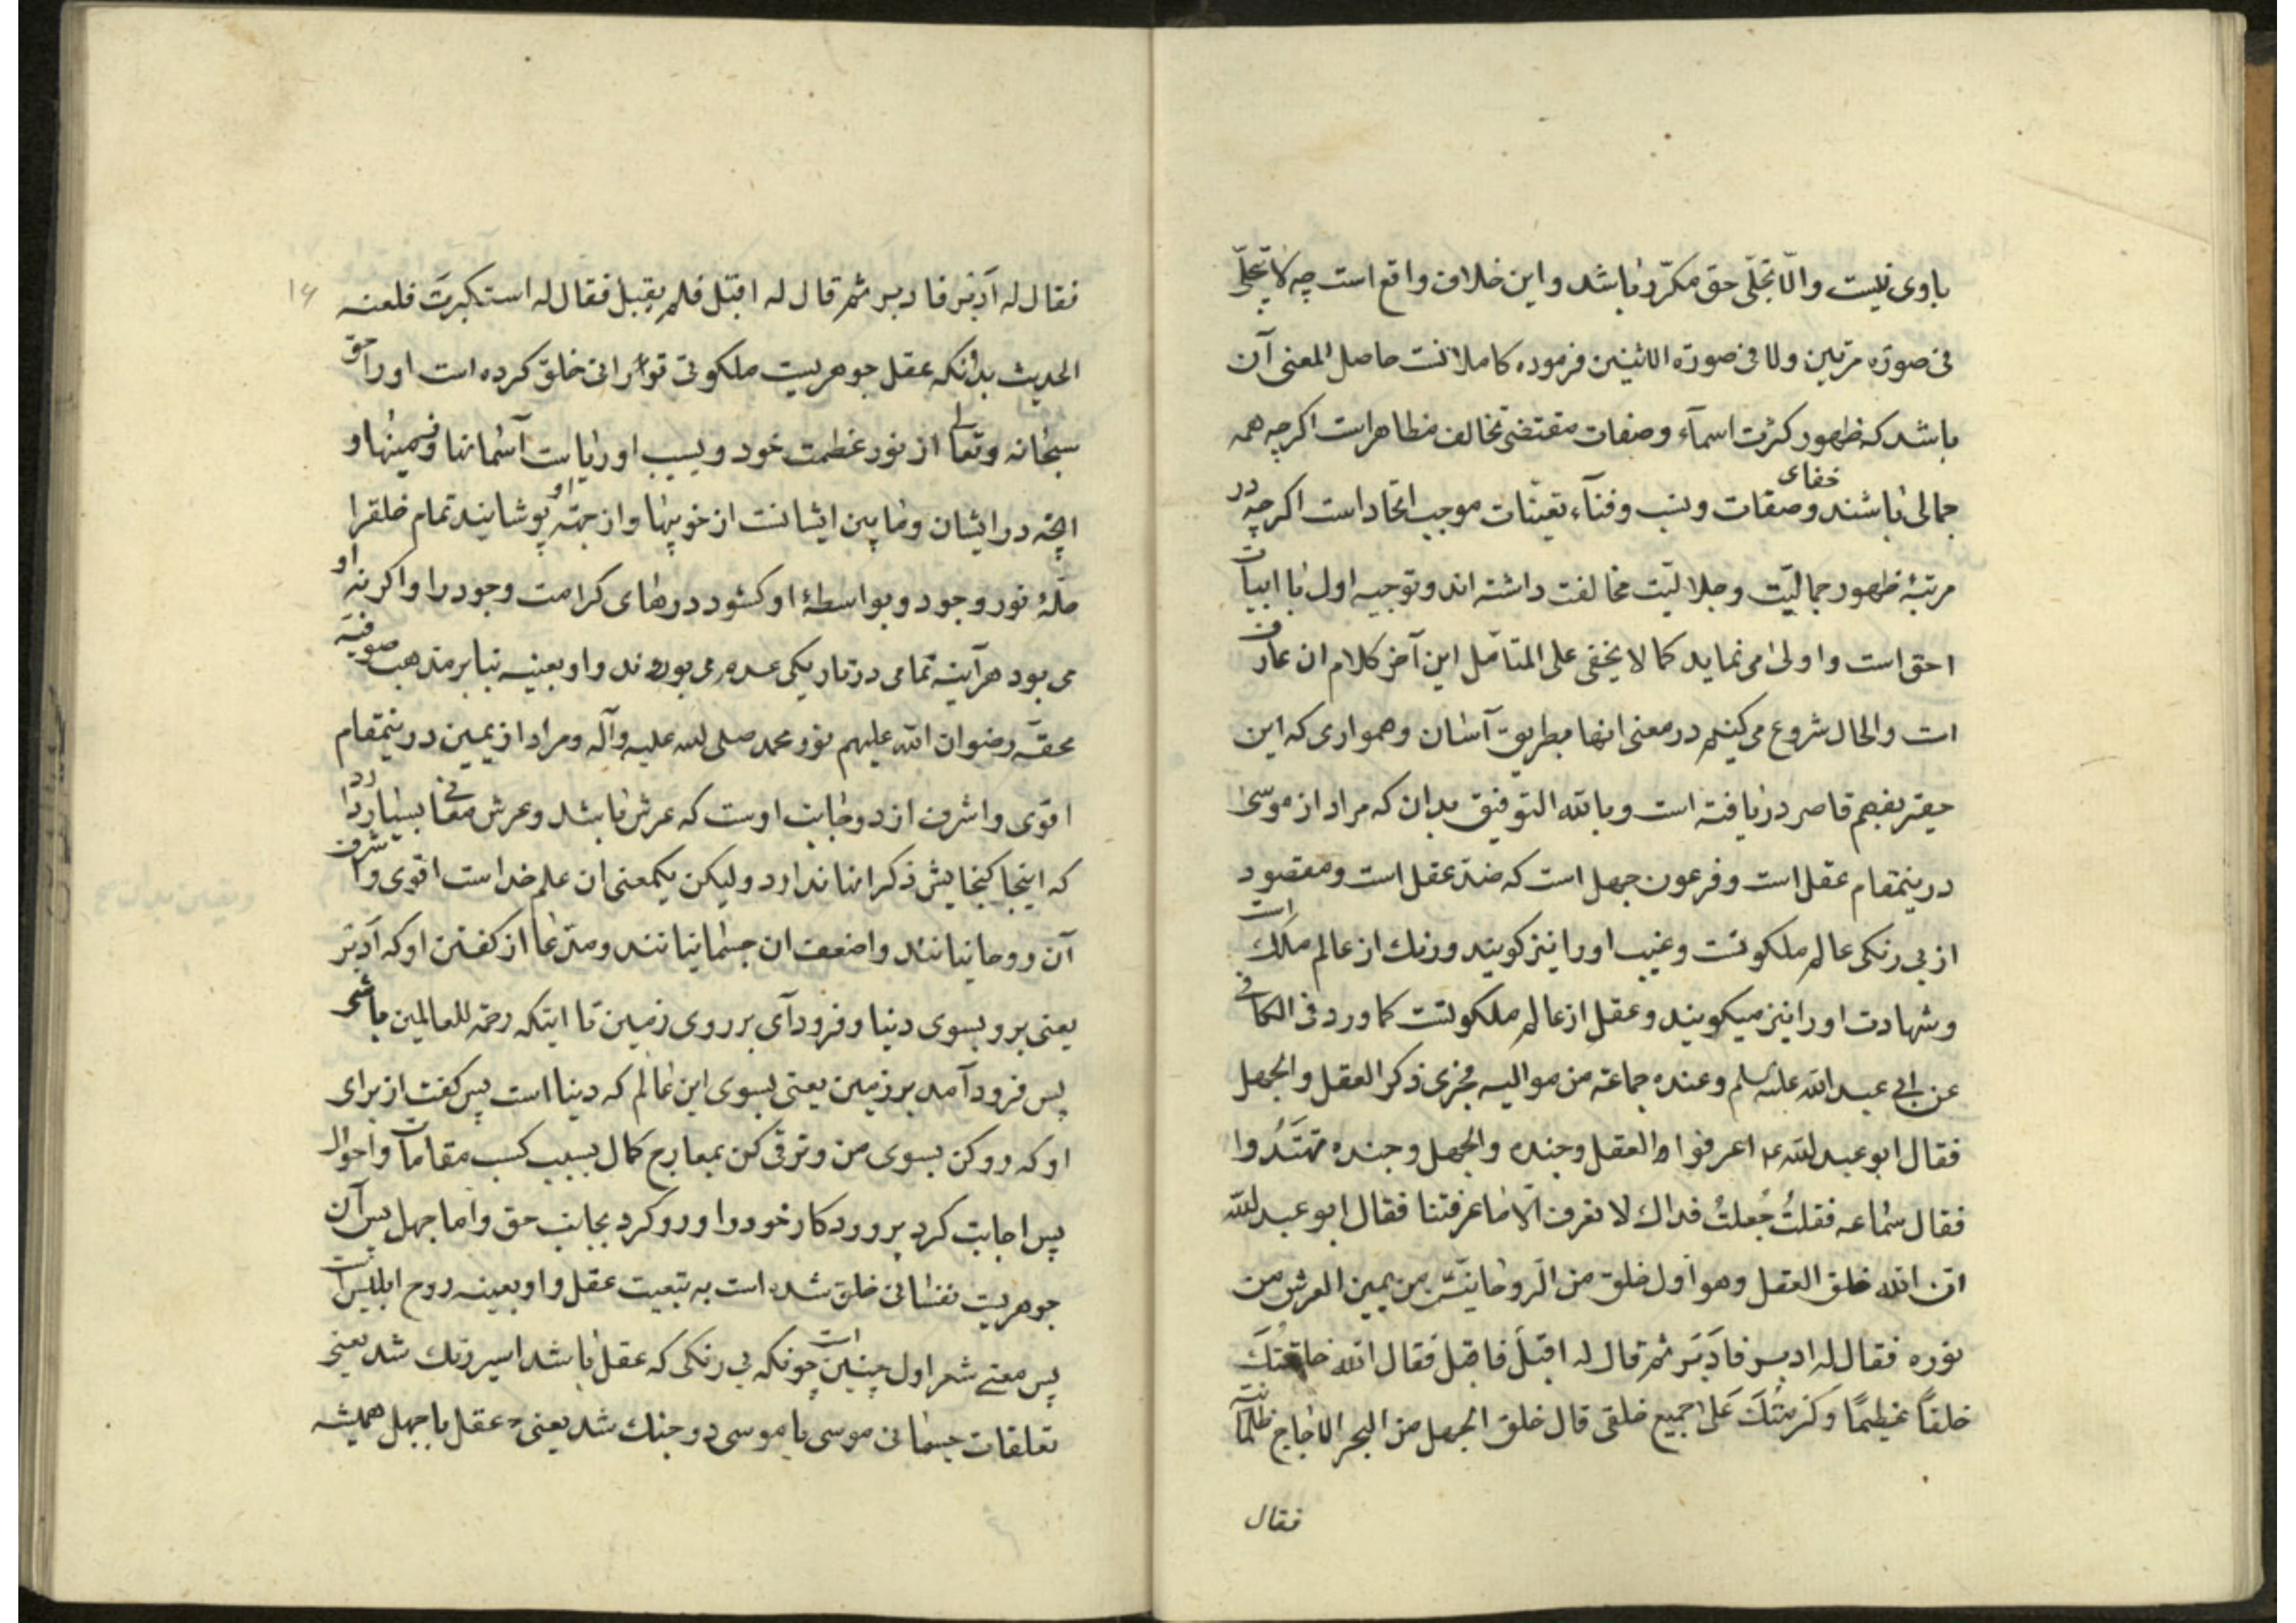 باوی نیست والّا تجلّی حق مکرّر باشد و این خلاف واقع است چه لا یتجلّی
فی صورة مرتین ولا فی صورة الاثنین فرموده کاملانست حاصل المعنی آن
باشد که ظهور کثرت اسمآء و صفات مقتضی تخالف مظاهر است اکرچه همه
جمالی باشند و خفای صفات و نسب و فنآء تعیّنات موجب اتحاد است اکرچه در
مرتبۀ ظهور جمالیّت و جلالیّت مخالفت داشته اند و توجیه اول با ابیات
احق است و اولی می نماید کما لا یخفی علی المتامّل این آخر کلام ان عارف
است والحال شروع می کنیم در معنی انها بطریق آسان و همواری که این
حقیر بفهم قاصر دریافته است و بالله التوفیق بدان که مراد از موسی
درینمقام عقل است و فرعون جهل است که ضد عقل است و مقصود
از بی رنکی عالم ملکوتست و غیب اورا نیز کویند و رنک از عالم ملک است
و شهادت اورا نیز میکویند و عقل از عالم ملکوتست کما ورد فی الکافی
عن ابی عبد الله علیه السلم و عنده جماعة من موالیه فجری ذکر العقل والجهل
فقال ابو عبد الله ع اعرفوا العقل و جنده والجهل و جنده تهتدوا
فقال سماعه فقلتُ جُعلتُ فداك لا نعرف الّا ما عرفتنا فقال ابو عبد الله
ان الله خلق العقل وهو اول خلق من الروحانیّین من یمین العرش من
نوره فقال له ادبر فاَدبَر ثم قال له اقبل فاقبل فقال الله خلقتكَ
خلقاً عظیمًا وکرمتُكَ عَلی جمیع خلقی قال خلق الجهل من البحر الاجاج ظلمانیة
فقال
۱۴
فقال له اَدبر فادبر ثم قال له اقبل فلم یقبل فقال له استکبرتَ فلعنه
الحدیث بدانکه عقل جوهریست ملکوتی نورانی خلق کرده است اورا حق
سبحانه و تعالی از نور عظمت خود و بسبب او آسمانها و زمینها و
انچه در ایشان و مابین ایشانست از خوبیها و از جهة او پوشانیند تمام خلقرا
حلّۀ نور وجود و بواسطۀ او کشود درهای کرامت وجود را و اکر نه او
می بود هرآینه تمامی در تاریکی عدم می بودند و او بعینه بنابر مذهب صوفیّه
محقّه رضوان الله علیهم نور محمد صلی الله علیه وآله و مراد از یمین درینمقام
اقوی و اشرف از دو جانب اوست که عرش باشد و عرش معانی بسیار دارد
که اینجا کنجایش ذکر انها ندارد ولیکن یکمعنی ان علم خداست اقوی و اشرف
آن روحانیانند و اضعف ان جسمانیانند و مدّعا از کفتن او که اَدبر
یعنی برو بسوی دنیا و فرود آی بر روی زمین تا اینکه رحمة للعالمین باشی
پس فرود آمد بر زمین یعنی بسوی این عالم که دنیا است پس کفت از برای
او که رو کن بسوی من و ترقی کن بمعارج کمال بسبب کسب مقامات و احوال
پس اجابت کرد پروردکار خود را و رو کرد بجانب حق و اما جهل پس آن
جوهریست نفسانی خلق شده است به تبعیت عقل و او بعینه روح ابلیس است
پس معنی شعر اول چنین است چونکه بی رنکی که عقل باشد اسیر رنك شد یعنی
تعلقات جسمانی موسی با موسی در جنك شد یعنی عقل با جهل همیشه